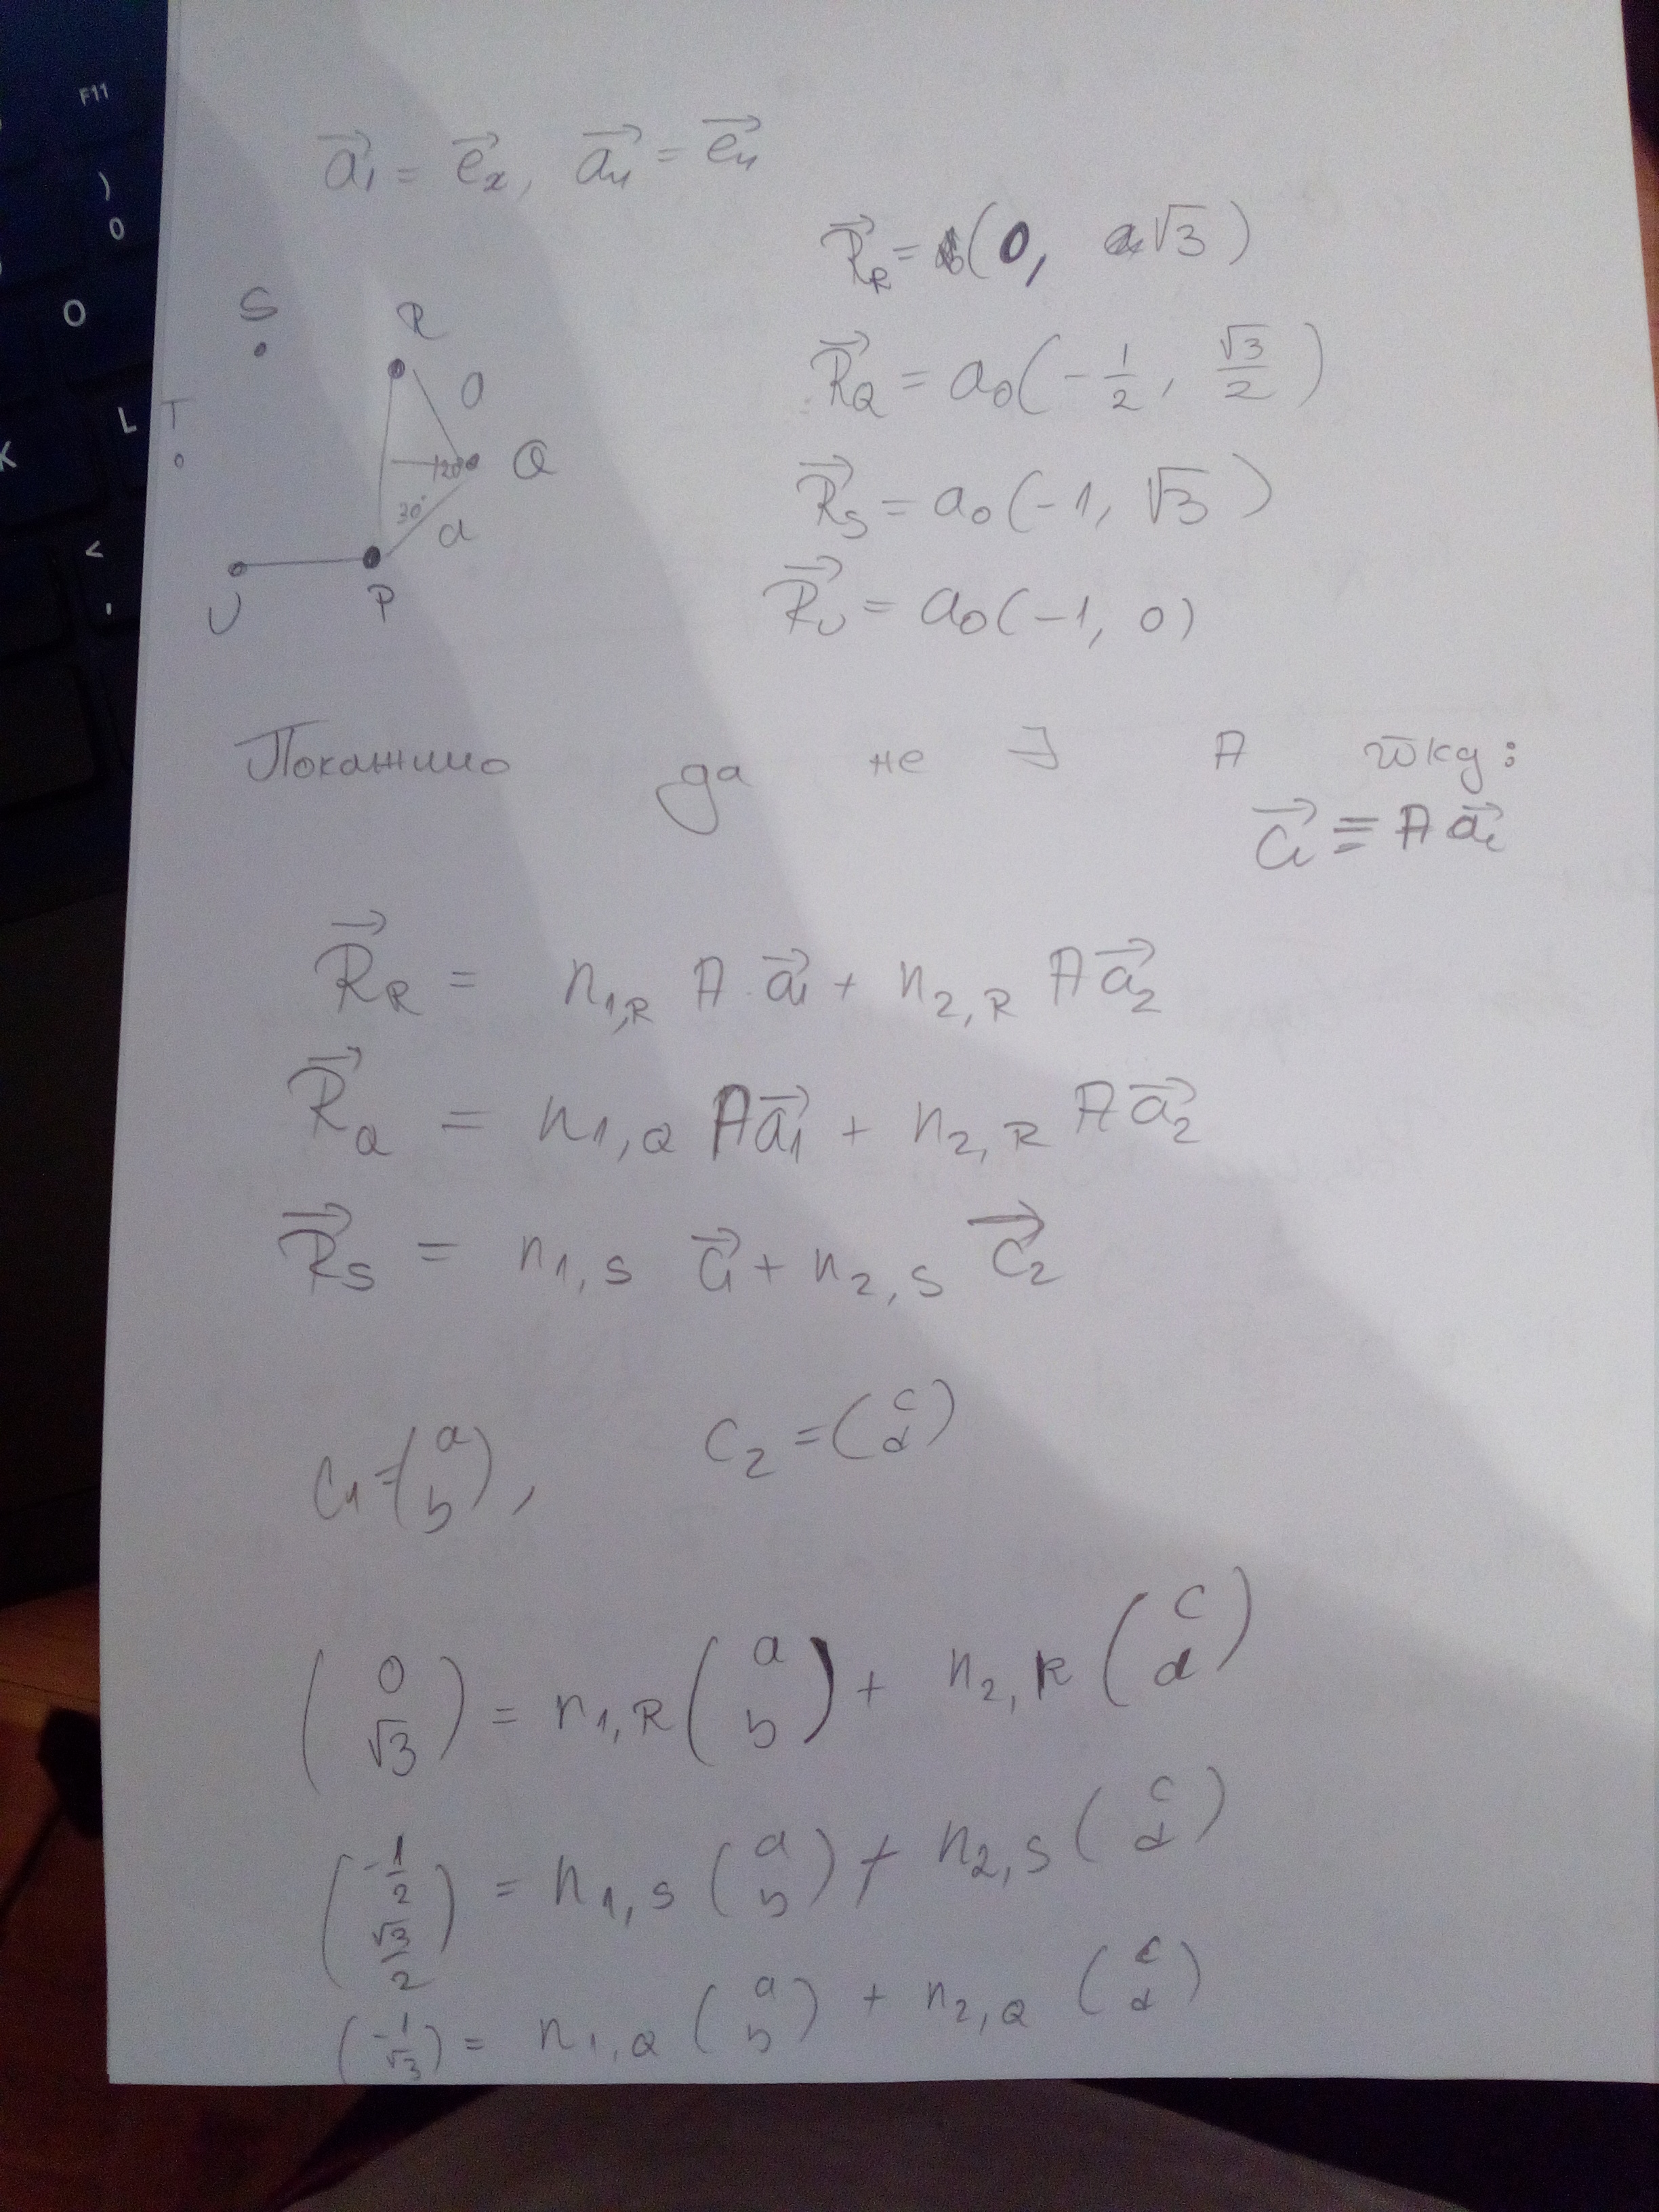 F11
)
0
O
L
K
<
,
a⃗₁ = e⃗ₓ, a⃗ᵧ = e⃗ᵧ
R⃗_R = (0, a√3)
R⃗_Q = a₀(-1/2, √3/2)
R⃗_S = a₀(-1, √3)
R⃗_U = a₀(-1, 0)
S
R
T
Q
120°
30°
a
U
P
Покажимо да не ∃ A
c⃗ᵢ ≡ A a⃗ᵢ
R⃗_R = n_{1,R} A a⃗₁ + n_{2,R} A a⃗₂
R⃗_Q = n_{1,Q} A a⃗₁ + n_{2,R} A a⃗₂
R⃗_S = n_{1,S} c⃗₁ + n_{2,S} c⃗₂
c₁ = (a b), c₂ = (c d)
(0 √3) = n_{1,R} (a b) + n_{2,R} (c d)
(-1/2 √3/2) = n_{1,S} (a b) + n_{2,S} (c d)
(-1 √3) = n_{1,Q} (a b) + n_{2,Q} (c d)